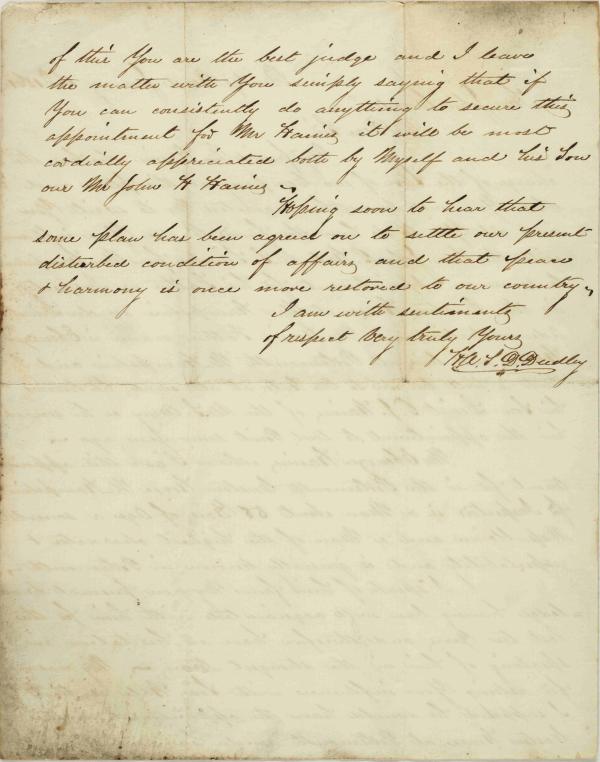 of this You are the best judge and I leave
the matter with You simply saying that if
You can consistently do anything to secure this
appointment for Mr Haines it will be most
cordially appriciated both by Myself and his Son
our Mr John H Haines
Hoping soon to hear that
some plan has been agreed on to settle our present
disturbed condition of affairs and that peace
& harmony is once more restored to our country
I am with sentiments
of respect Very truly Yours
S. D. Dudley